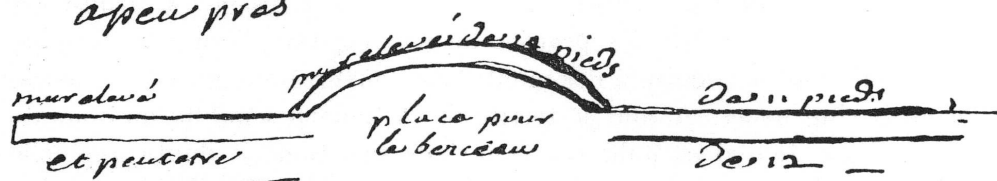 apeu pres
mur elevé de 11 pieds
mur elevé
de 11 pieds
place pour
le berceau
et peutetre
de 12